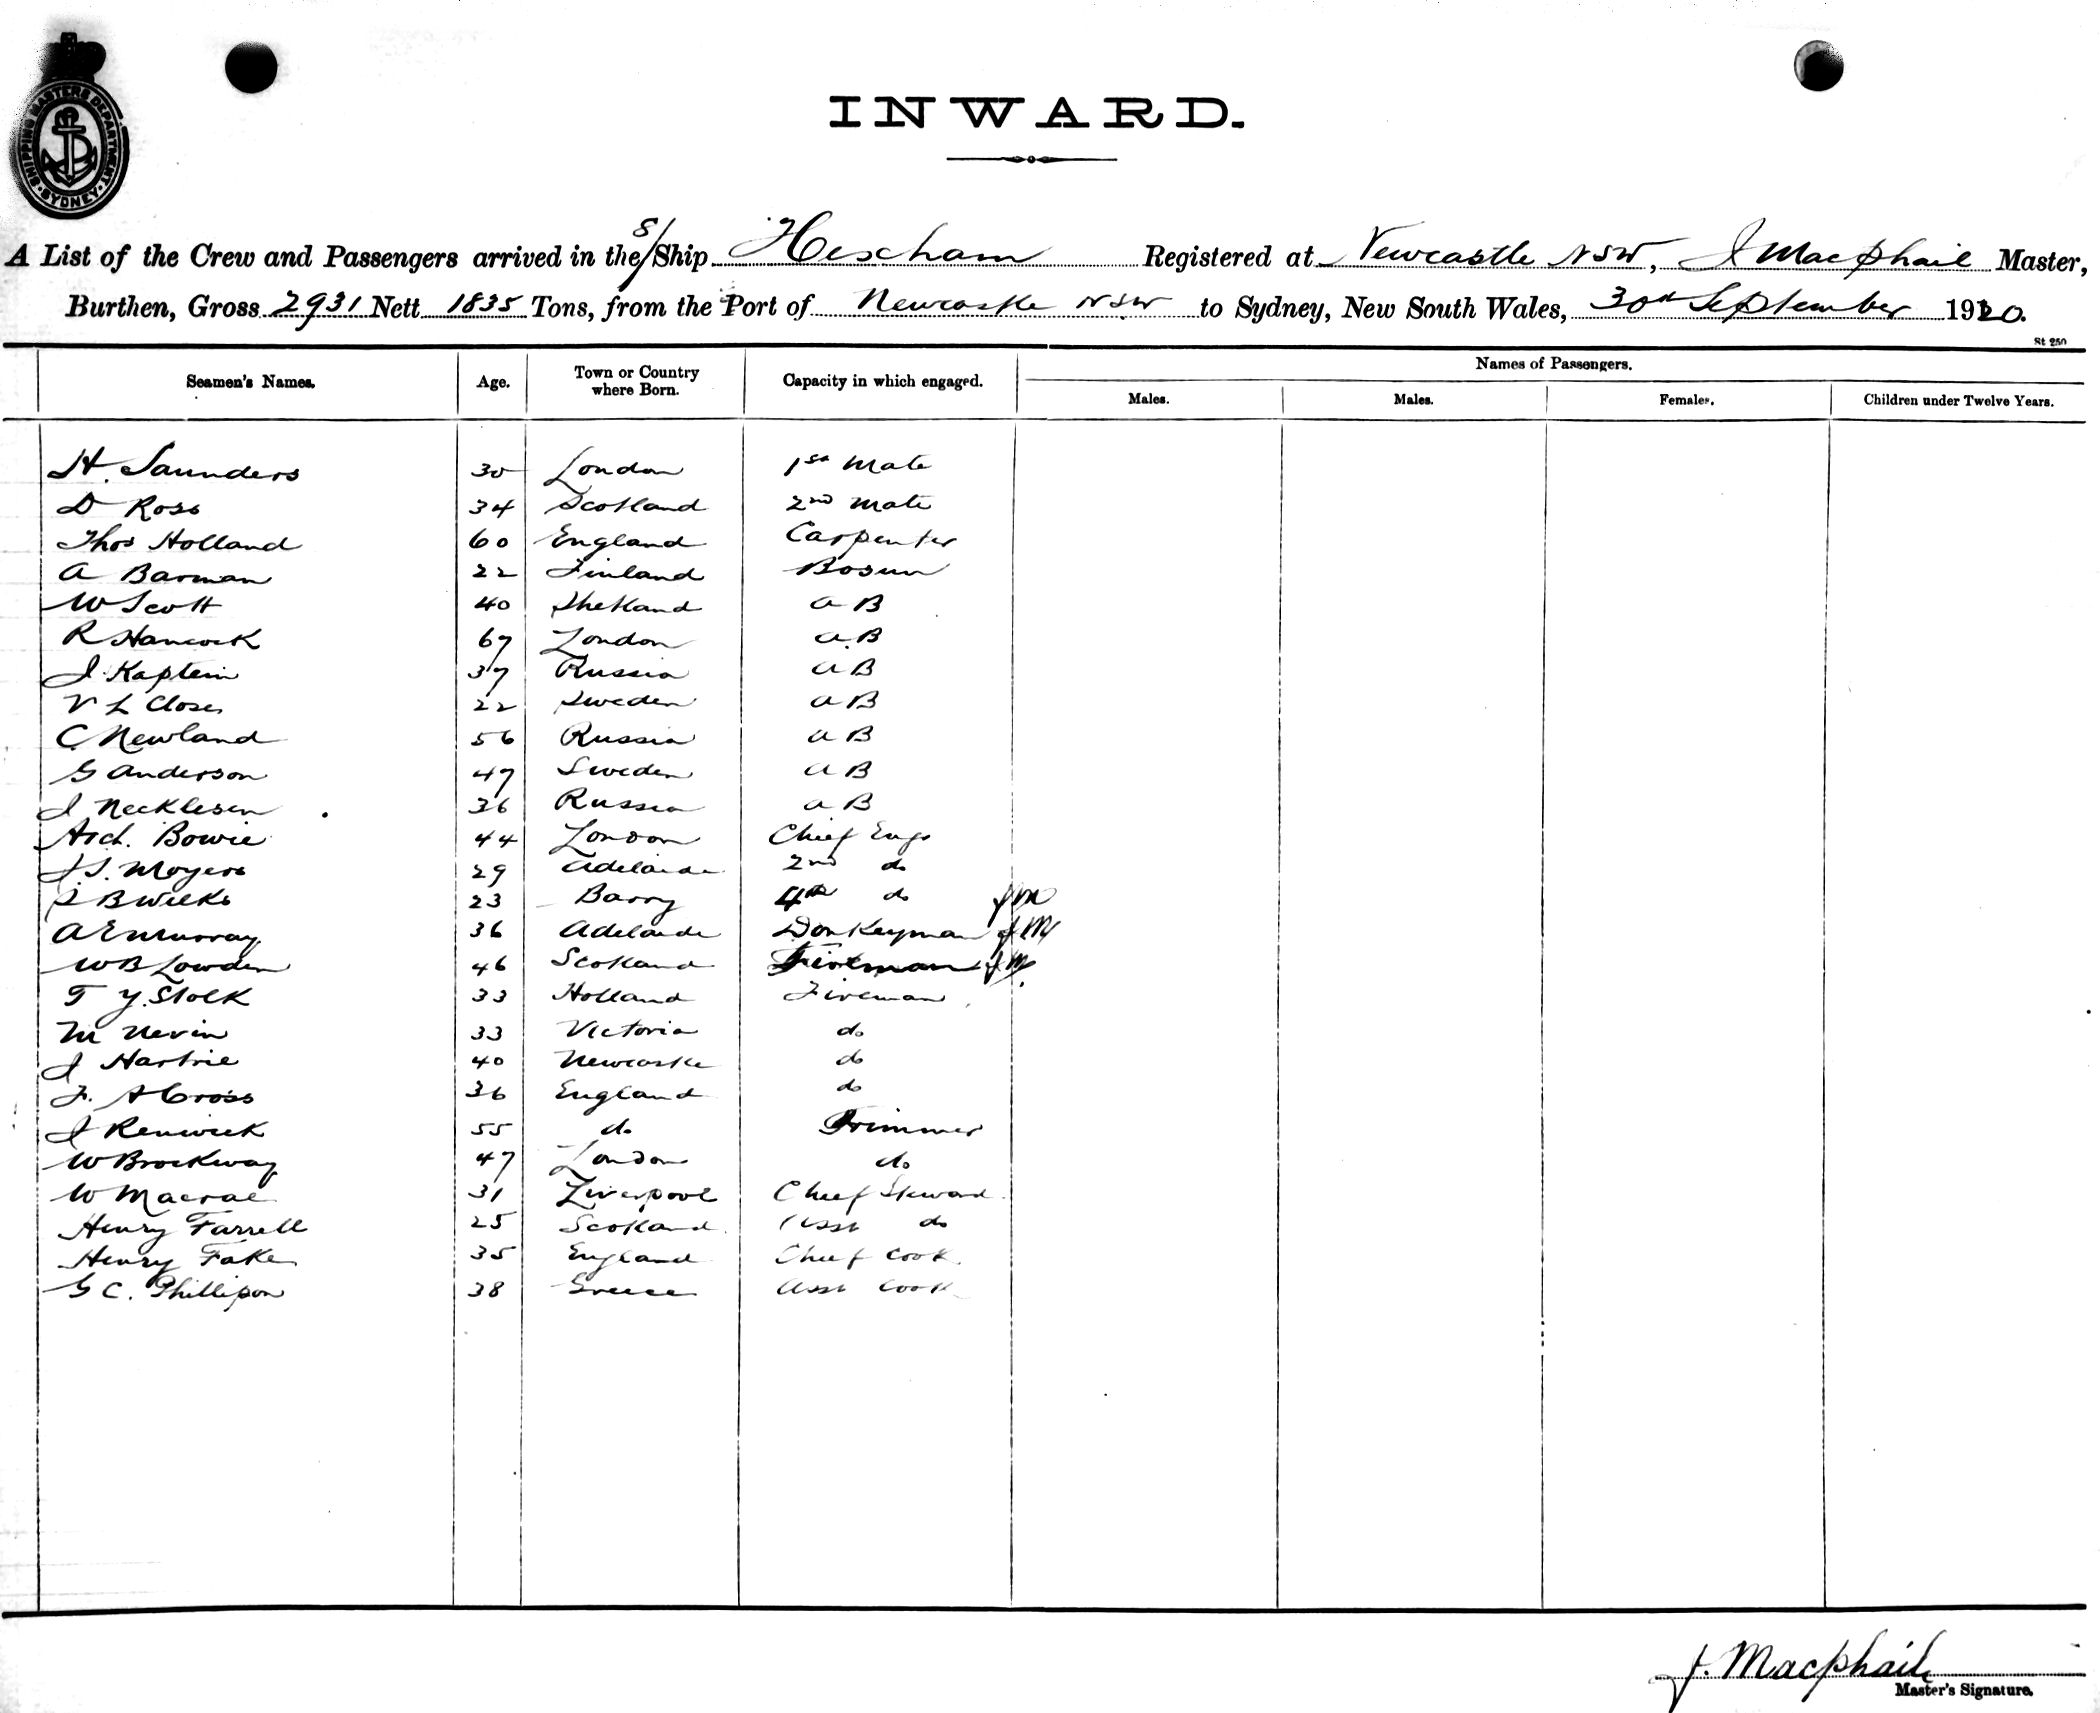 SHIPPING MASTERS DEPARTMENT. SYDNEY.
INWARD.
A List of the Crew and Passengers arrived in the S/Ship Hescham Registered at Newcastle NSW, J Macphail Master,
Burthen, Gross 2931 Nett 1835 Tons, from the Port of Newcastle NSW to Sydney, New South Wales, 30th September 1920.
St 250
Seamen's Names. Age. Town or Country where Born. Capacity in which engaged. Names of Passengers.
Males. Males. Females. Children under Twelve Years.
H. Saunders 30 London 1st Mate
D Ross 34 Scotland 2nd Mate
Thos Holland 60 England Carpenter
A Barman 22 Finland Bosun
W Scott 40 Shetland A B
R Hancock 67 London A.B
J Kaptein 37 Russia A B
V L Closer 22 Sweden A B
C Newland 56 Russia A B
G Anderson 47 Sweden A B
J Necklesen 36 Russia A B
Arch. Bowie 44 London Chief Engr
J.S. Moyers 29 Adelaide 2nd do
B Wilks 23 Barry 4th do JM
A E Murray 36 Adelaide Donkeyman JM
W B Lowden 46 Scotland Fireman JM
T Y. Stolk 33 Holland Fireman
M Nevin 33 Victoria do
J Hartrie 40 Newcastle do
F. A Cross 36 England do
J Renwick 55 do Trimmer
W Brockway 47 London do
W Macrae 31 Liverpool Chief Steward
Henry Farrell 25 Scotland Asst do
Henry Fake 35 England Chief Cook
G C. Phillipson 38 Greece Asst Cook
J. Macphail
Master's Signature.